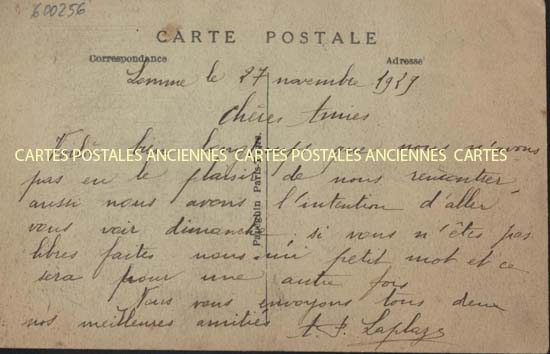 600256
CARTE POSTALE
Correspondance
Adresse
Lomme le 27 novembre 1939
Chères Amies
Voilà bien longtemps que nous n'avons
CARTES POSTALES ANCIENNES CARTES POSTALES ANCIENNES CARTES
pas eu le plaisir de nous rencontrer
aussi nous avons l'intention d'aller
vous voir dimanche si vous n'êtes pas
libres faites nous petit mot et ce
sera pour une autre fois
Nous vous envoyons tous deux
nos meilleures amitiés
Laplage
Paris